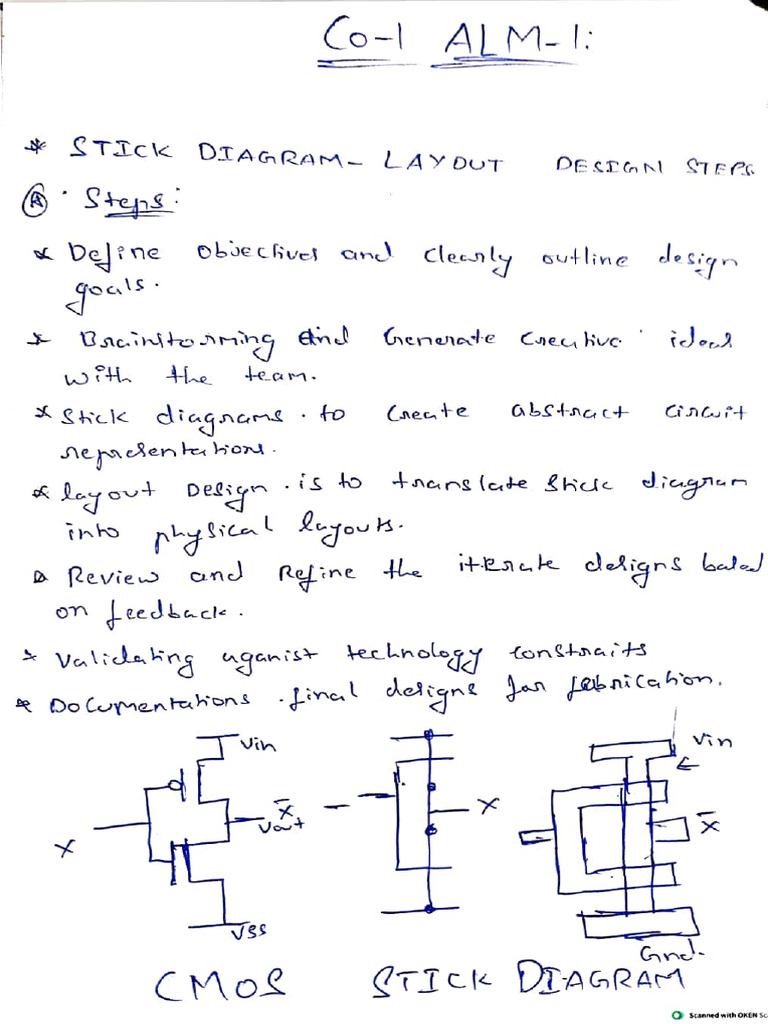 Co-1 ALM-1:
* STICK DIAGRAM - LAYOUT DESIGN STEPS
(A) · Steps:
* Define objectives and clearly outline design
goals.
* Brainstorming and Generate creative ideas
with the team.
* Stick diagrams · to create abstract circuit
representations.
* layout Design · is to translate stick diagram
into physical layouts.
* Review and Refine the iterate designs based
on feedback.
* Validating aganist technology constraits
* Documentations · final designs for fabrication.
Vin
Vin
X
X̄
Vout
X
X̄
VSS
Gnd.
CMOS STICK DIAGRAM
Scanned with OKEN Sc